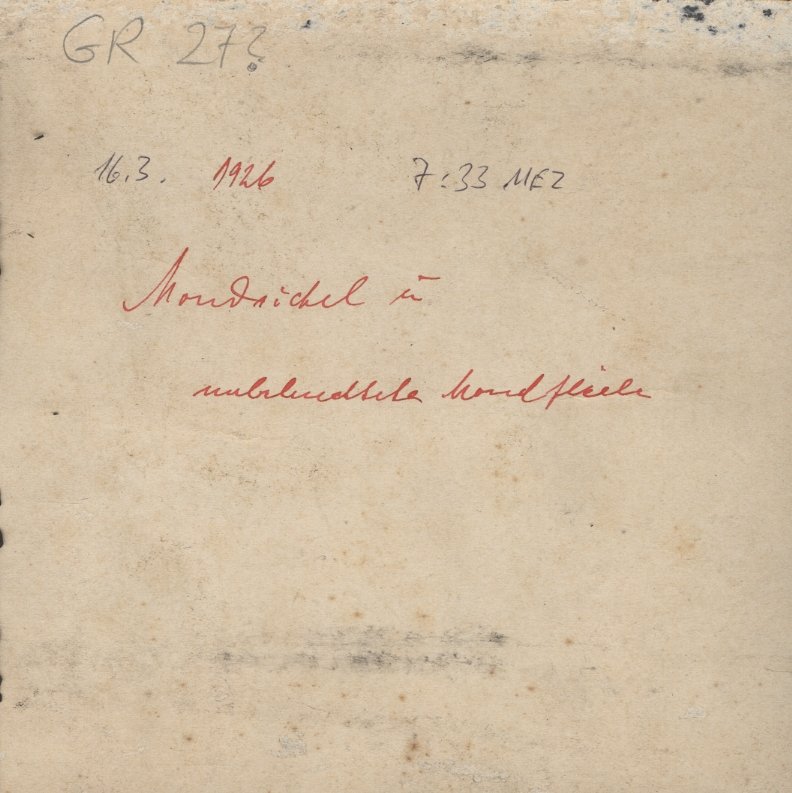 GR 27?
16.3. 1926 7:33 MEZ
Mondsichel ū
unbeleuchtete Mondfläche